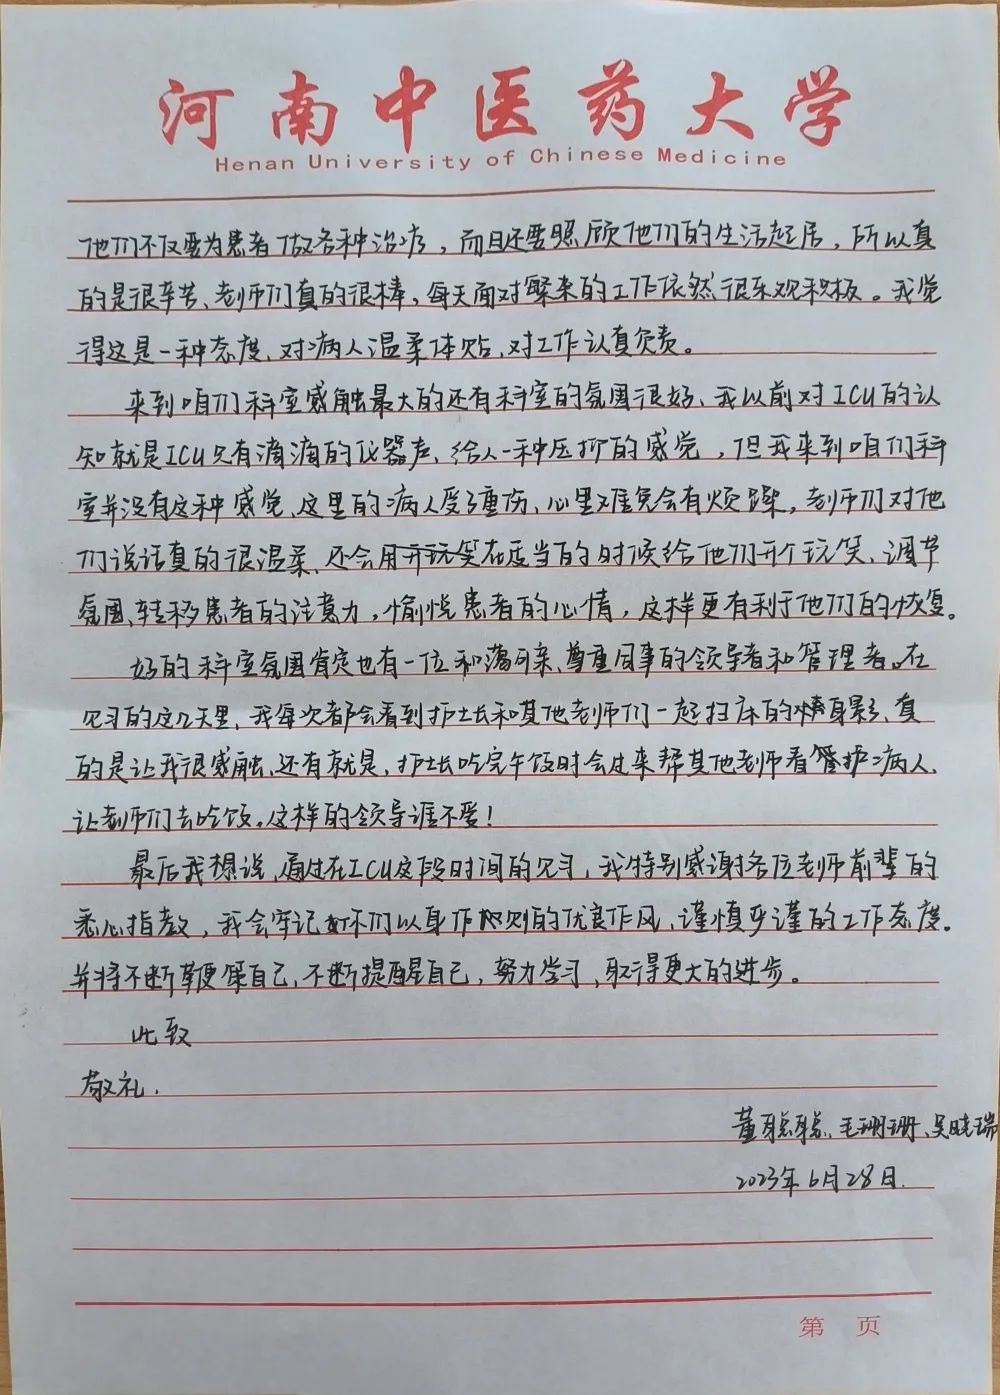 河南中医药大学
Henan University of Chinese Medicine
他们不仅要为患者做各种治疗，而且还要照顾他们的生活起居，所以真
的是很辛苦、老师们真的很棒，每天面对繁来的工作依然很乐观积极。我觉
得这是一种态度、对病人温柔体贴、对工作认真负责。
来到咱们科室感触最大的还有科室的氛围很好、我以前对ICU的认
知就是ICU只有滴滴的仪器声、给人一种压抑的感觉，但我来到咱们科
室并没有这种感觉、这里的病人受了重伤、心里难免会有烦躁，老师们对他
们说话真的很温柔、还会用开玩笑在适当的时候给他们开个玩笑、调节
氛围、转移患者的注意力，愉悦患者的心情，这样更有利于他们的恢复。
好的科室氛围肯定也有一位和蔼可亲、尊重同事的领导者和管理者。在
见习的这几天里、我每次都会看到护士长和其他老师们一起扫床的身影、真
的是让我很感触、还有就是、护士长吃完午饭时会过来帮其他老师看管护病人、
让老师们去吃饭。这样的领导谁不爱！
最后我想说、通过在ICU这段时间的见习，我特别感谢各位老师前辈的
悉心指教，我会牢记你们以身作则的优良作风、谨慎严谨的工作态度。
并将不断鞭策自己、不断提醒自己，努力学习、取得更大的进步。
此致
敬礼．
董聪聪、毛珊珊、吴晓瑞
2023年6月28日．
第 页